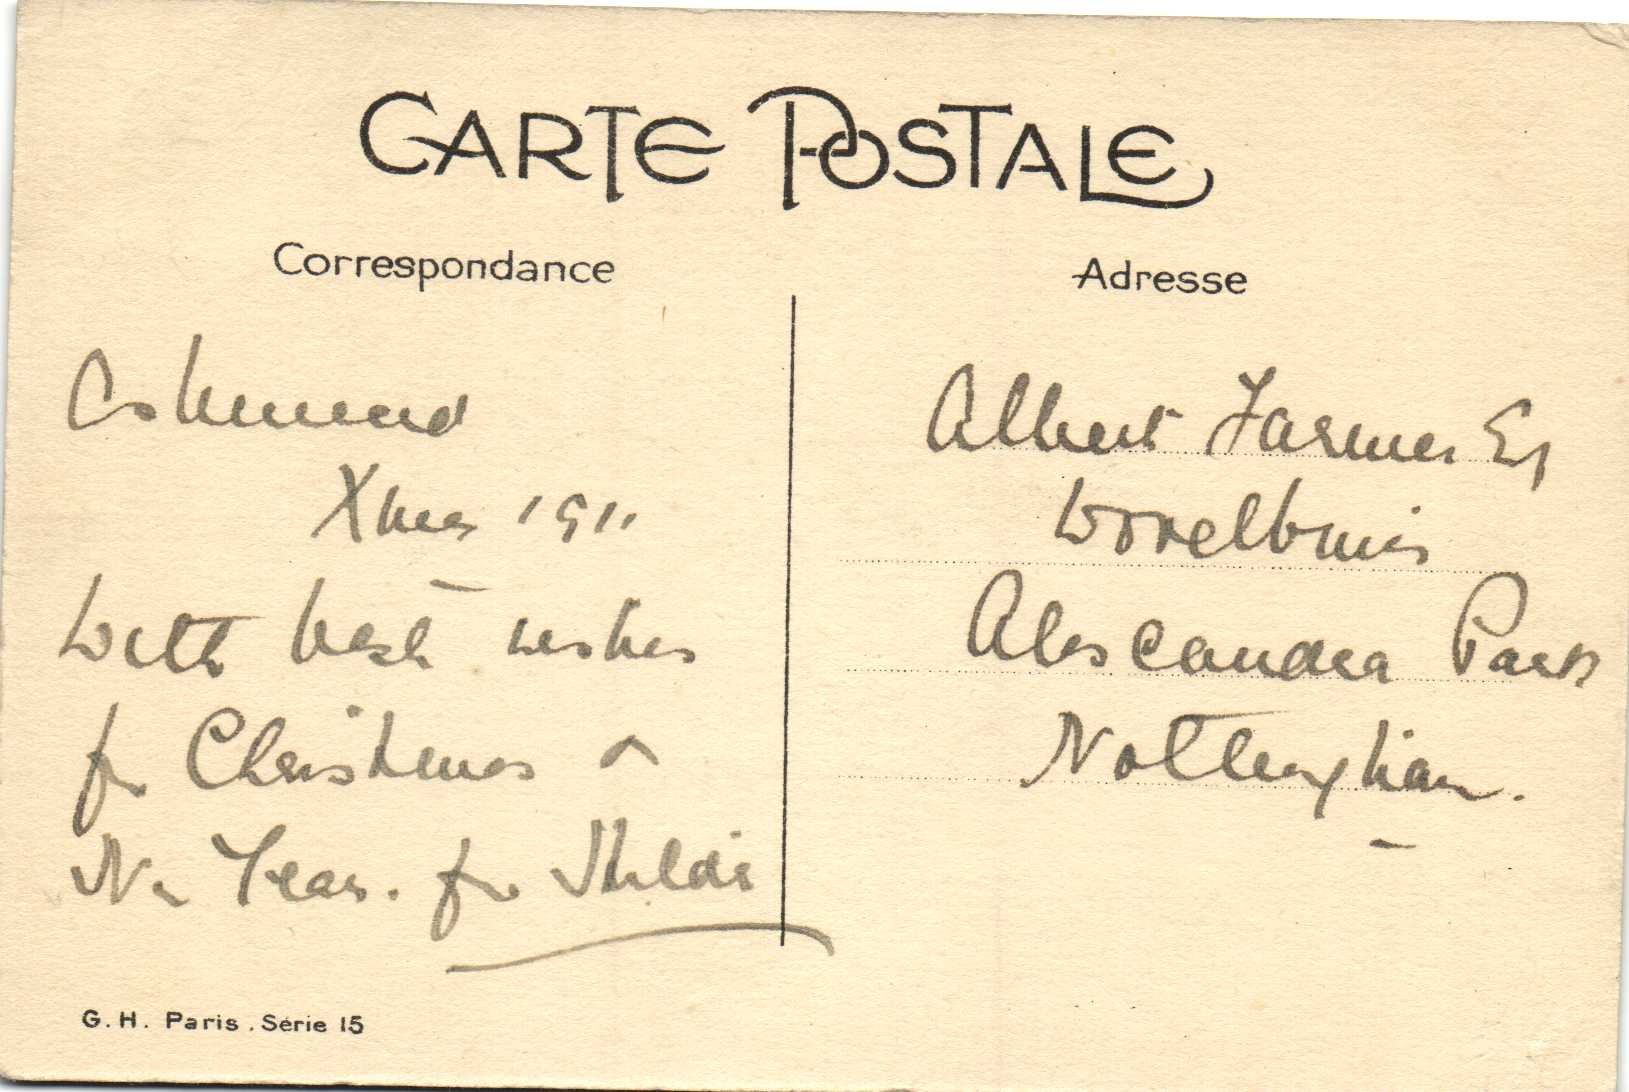 CARTE POSTALE
Correspondance
Adresse
Xmas 1911
With best wishes
for Christmas &
Nw Year. fr Hilda
Albert Farmer Esq
Alexandra Park
Nottingham.
G. H. Paris. Série 15